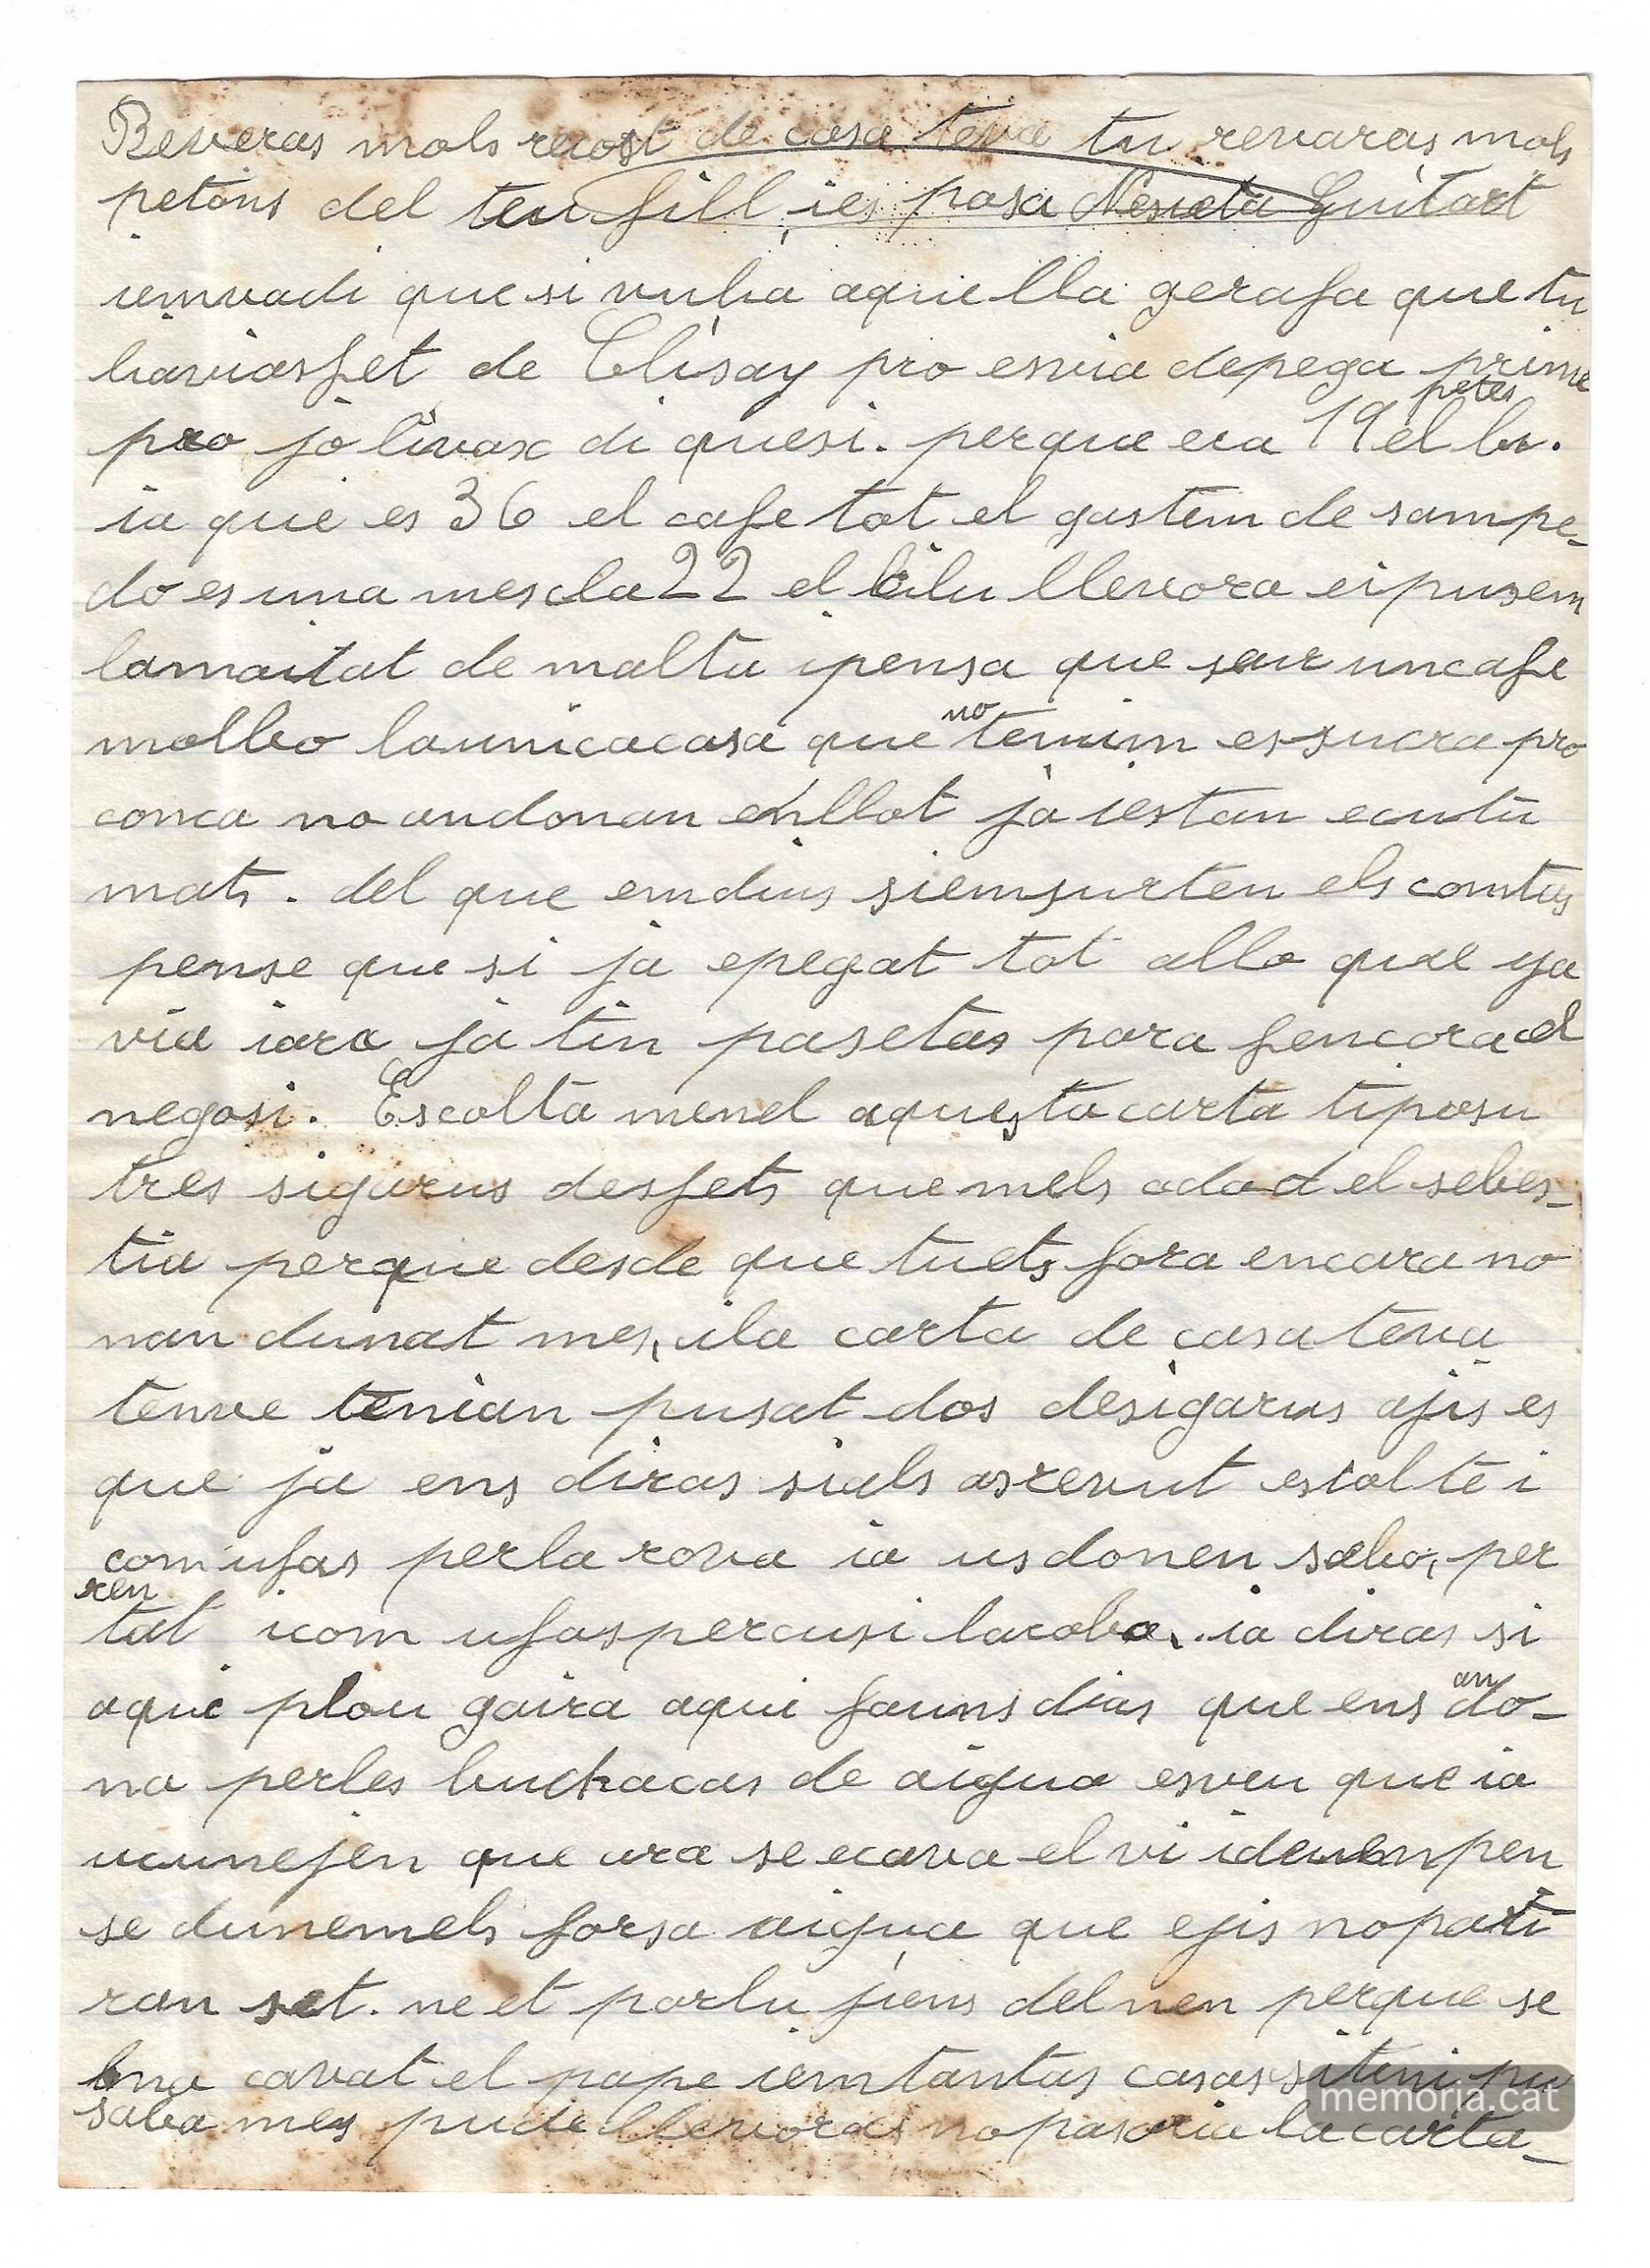 Reveras mols recost de casa teva tu revaras mols
petons del teu fill ies posa Neneta Guitart
iemvadi que si vulia aquella gerafa que tu
haviasfet de Clisay pro esvia depega prime
petes
pro jo livax di quesi. perque era 19 el lu.
ia que es 36 el cafe tot el gastem de sampe-
do es una mescla 22 el kilu llevora ei pusem
lamaitat de maltu ipensa que seur uncafe
molbo launicacasa que no tenim es sucra pro
conca no andonan enllot ja iestam ecustu
mats. del que emdius siemsurten els comtus
pense que si ja epegat tot allo que ya
via iara ja tin pasetas para fencora el
negosi. Escolta menel aquesta carta tiposu
tres sigarus desfets que mels adad el sebes-
tia perque desde que tuets fora encara no
nan dunat mes, ila carta de casa teva
tenve tenian pusat dos desigarus ajis es
que ja ens diras sials asrevut escolte i
com ufas perla rova ia us donen sabo, per
ren
tat icom ufas percusi laroba. ia diras si
aqui plou gaira aqui fauns dias que ens an do-
na perles butxacas de aigua esveu que ia
ucunejen que ara se ecava el vi idevenpen
se dunemels forsa aigua que ejis nopati
ran set. ne et parlu jiens del nen perque se
ma cavat el pape iemtantus casas sitini pu
saba mes pude llevoras nopasaria lacarta-
memoria.cat